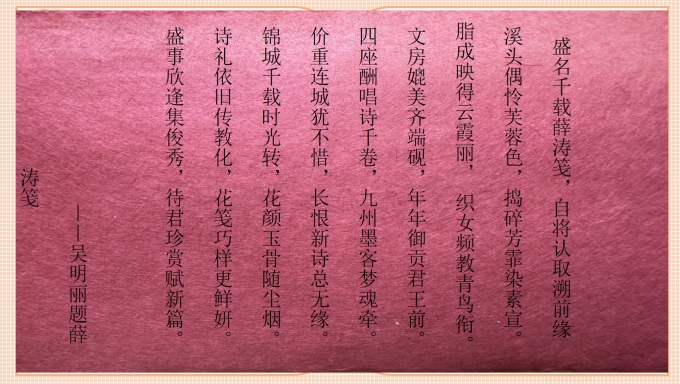 盛名千载薛涛笺，自将认取溯前缘
溪头偶怜芙蓉色，捣碎芳霏染素宣。
脂成映得云霞丽，织女频教青鸟衔。
文房媲美齐端砚，年年御贡君王前。
四座酬唱诗千卷，九州墨客梦魂牵。
价重连城犹不惜，长恨新诗总无缘。
锦城千载时光转，花颜玉骨随尘烟。
诗礼依旧传教化，花笺巧样更鲜妍。
盛事欣逢集俊秀，待君珍赏赋新篇。
——吴明丽题薛
涛笺